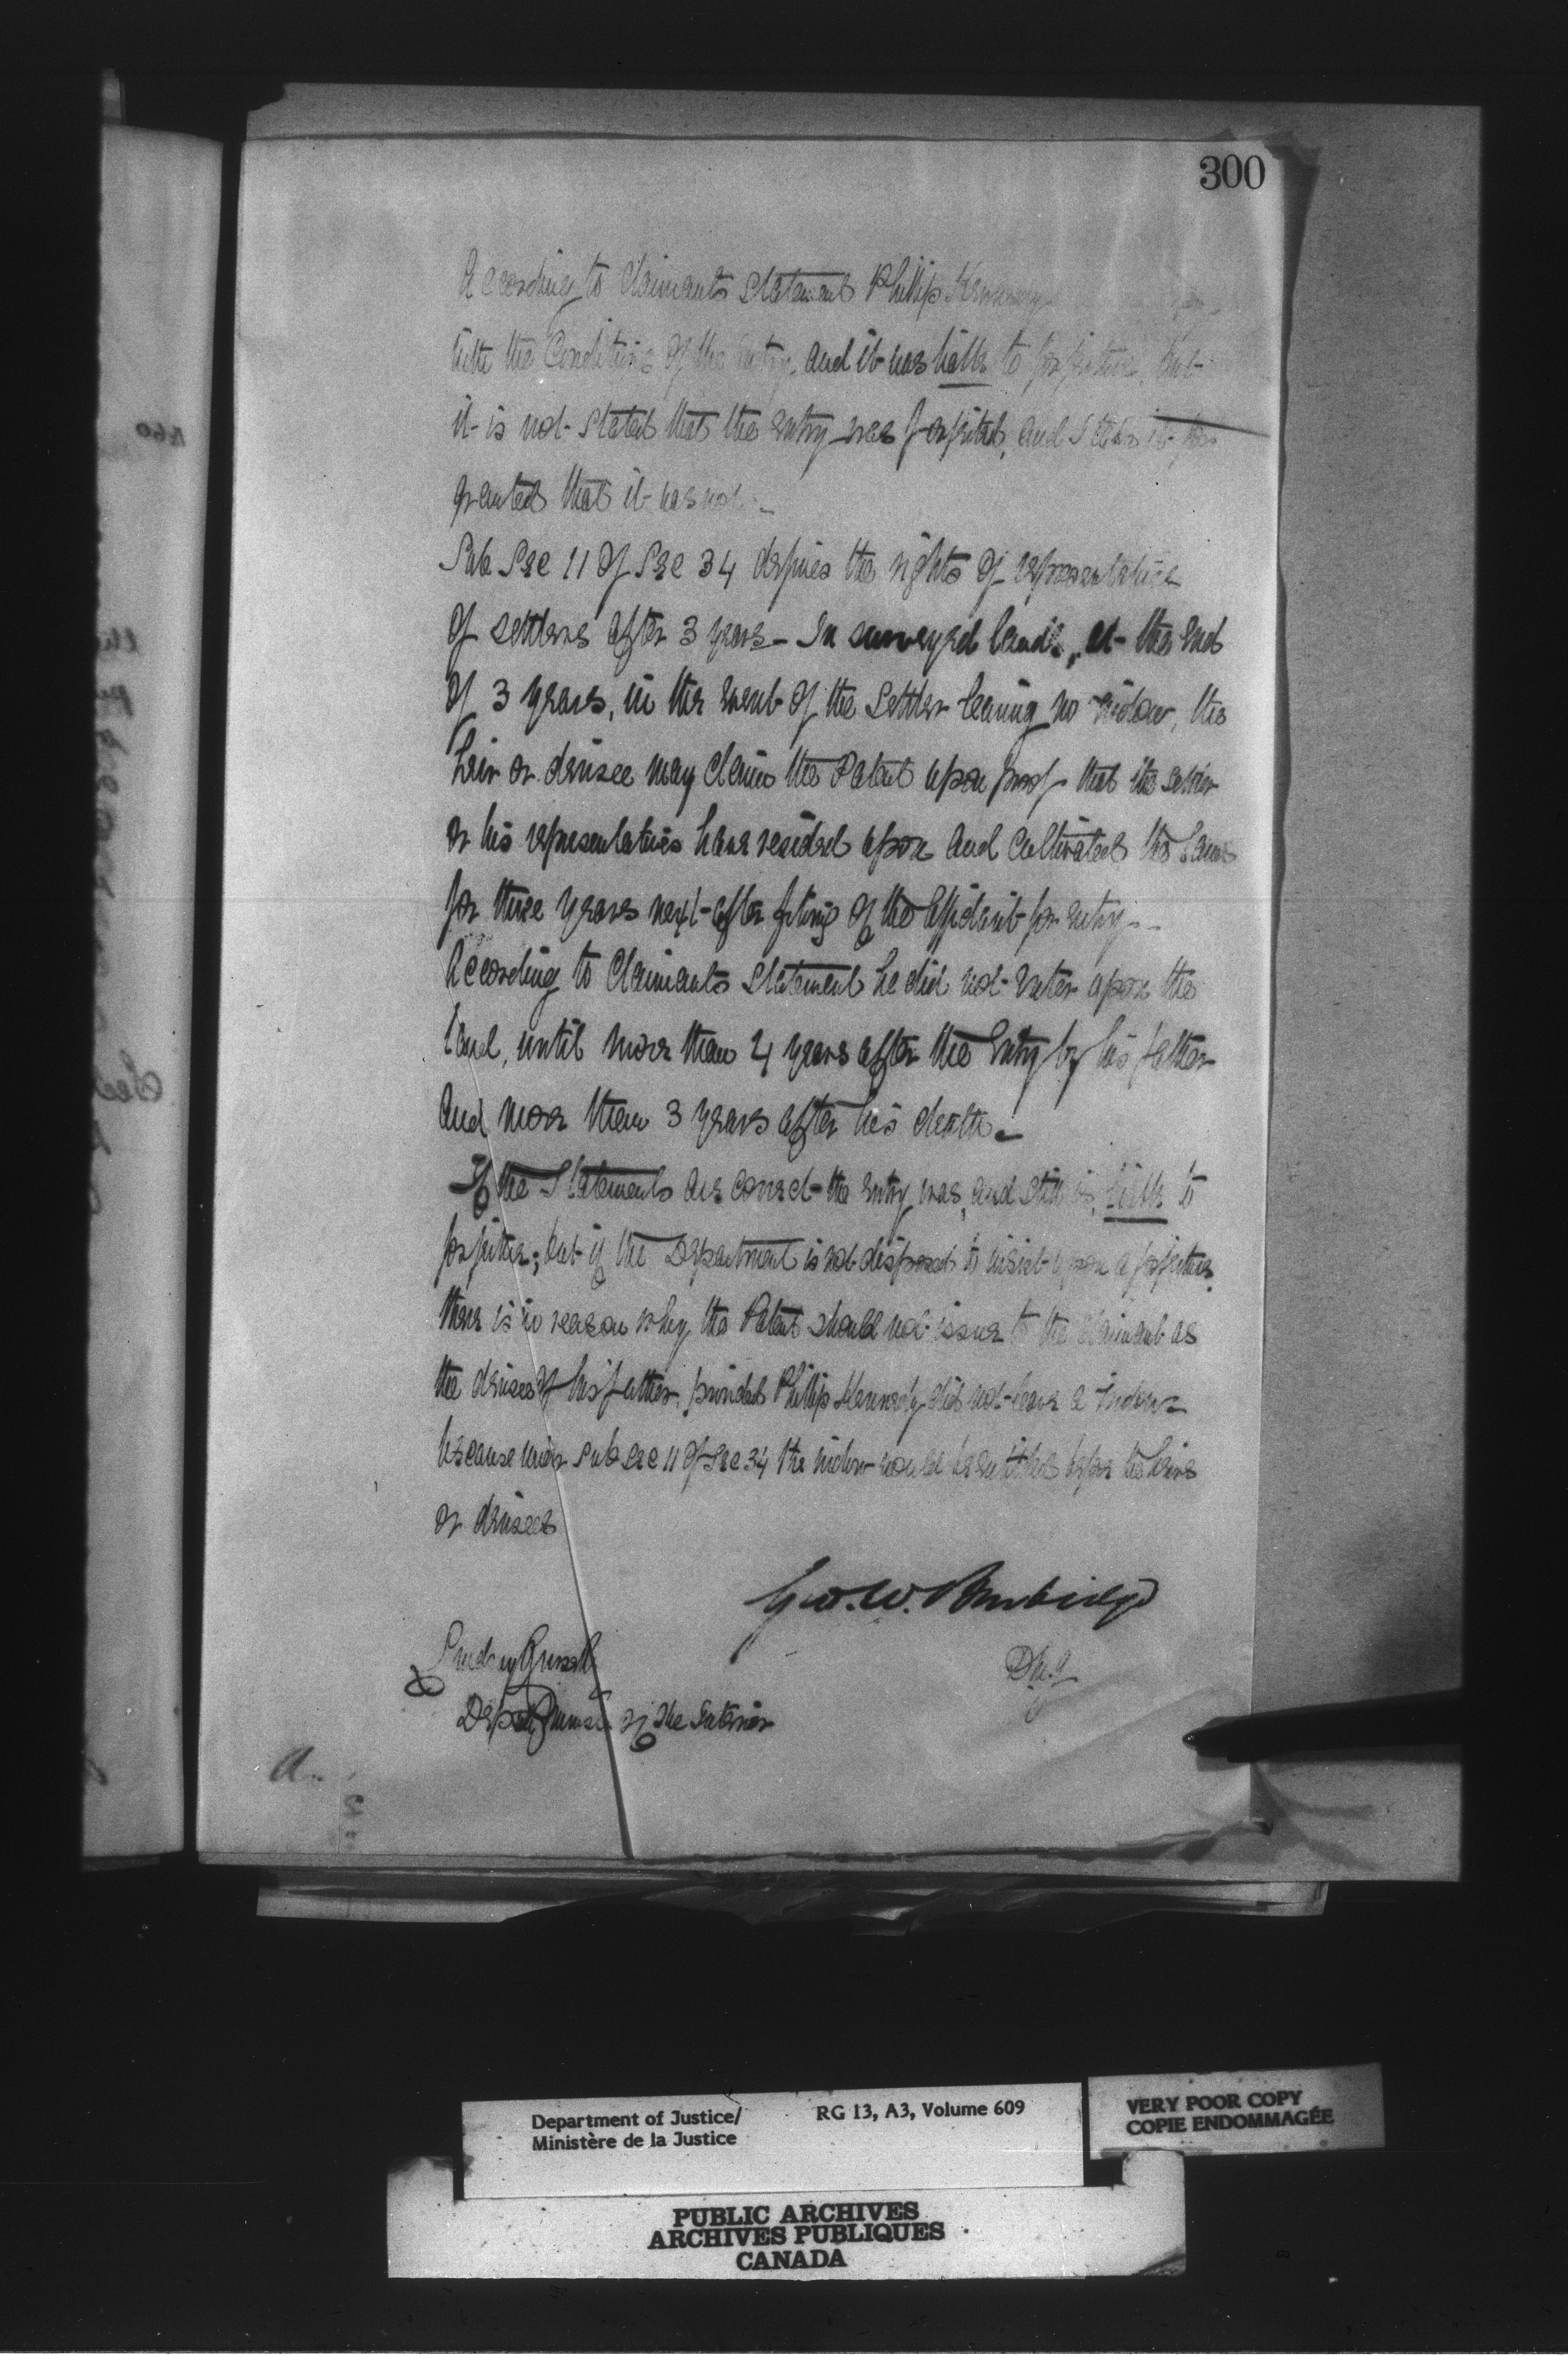 300
According to Claimants Statement Phillip Kennedy
with the Conditions of the entry, and it was liable to forfeiture, but
it is not stated that the entry was forfeited, and I take it for
granted that it was not.
Sub Sec 11 of Sec 34 defines the rights of representatives
of settlers after 3 years - In surveyed lands, at the end
of 3 years, in the event of the Settler leaving no widow, the
heir or devisee may claim the Patent upon proof that the settler
or his representatives have resided upon and cultivated the land
for three years next after filing of the affidavit for entry --
According to Claimants Statement he did not enter upon the
land, until more than 4 years after the Entry by his father
and more than 3 years after his death -
If the Statements are correct the entry was, and still is, liable to
forfeiture; but if the Department is not disposed to insist upon a forfeiture
there is no reason why the Patent should not issue to the claimant as
the devisee of his father, provided Phillip Kennedy did not leave a widow -
because under Sub Sec 11 of Sec 34 the widow would be entitled before the heirs
or devisees
Geo. W. Burbidge
D.M.J
Lindsay Russell
Deputy Minister of the Interior
A.
Department of Justice/
Ministère de la Justice
RG 13, A3, Volume 609
VERY POOR COPY
COPIE ENDOMMAGÉE
PUBLIC ARCHIVES
ARCHIVES PUBLIQUES
CANADA